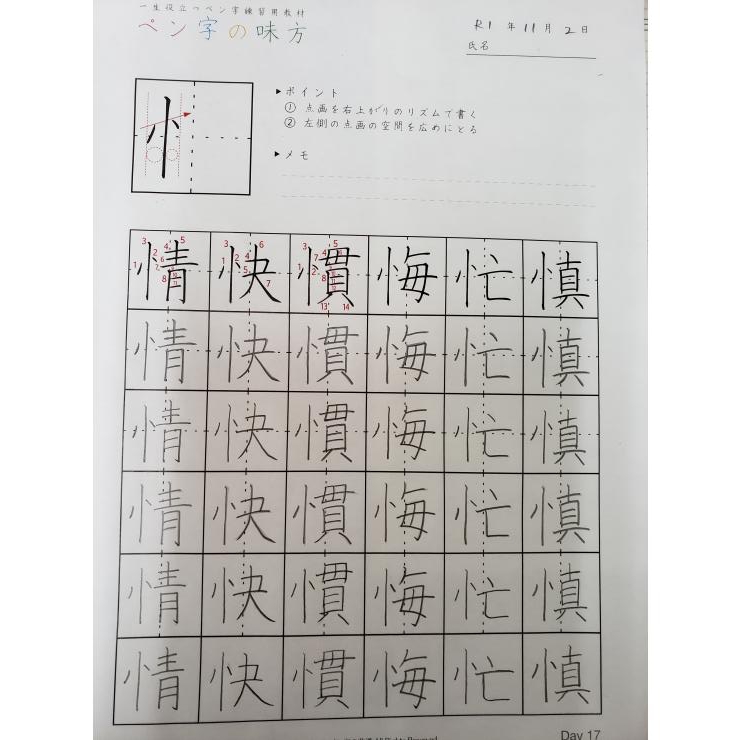 一生役立つペン字練習用教材
ペン字の味方
R1年11月2日
氏名
忄
▶ポイント
① 点画を右上がりのリズムで書く
② 左側の点画の空間を広めにとる
▶メモ
情快慣悔忙慎
情快慣悔忙慎
情快慣悔忙慎
情快慣悔忙慎
情快慣悔忙慎
情快慣悔忙慎
Day 17